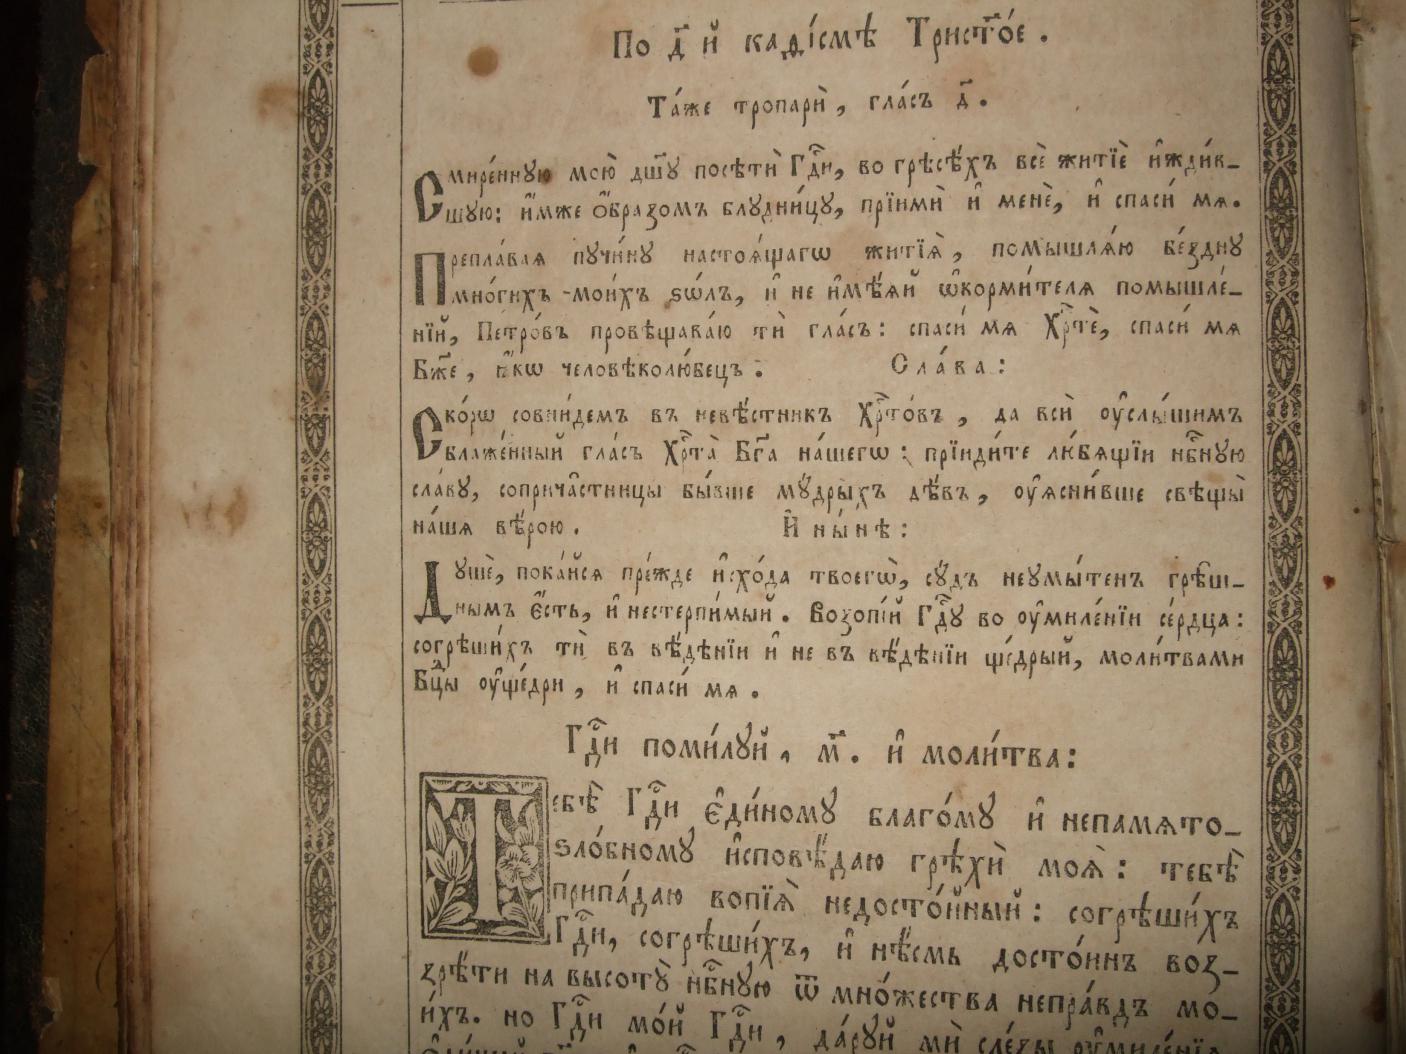 По д҃ й каѳі́смѣ Трист҃о́е.
Та́же тропарѝ, гла́съ д҃.
Смире́нную мою̀ дш҃у посѣтѝ Гдⷭ҇и, во грѣсѣ́хъ всѐ житїѐ и҆жди́в_
шую: и҆́мже ѻ҆́бразомъ блудни́цу, прїимѝ и҆ менѐ, и҆ спаси́ мѧ.
Преплаваѧ пучи́ну настоѧ́щагѡ житїѧ̀, помышлѧ́ю бе́здну
мно́гихъ мои́хъ ѕѡ́лъ, и҆ не и҆мѣ́ѧй ѡ҆корми́телѧ помышле́_
нїй, Петро́въ провѣщава́ю тѝ гла́съ: спаси́ мѧ Хрⷭ҇тѐ, спаси́ мѧ
Бж҃е, ꙗ҆́кѡ человѣколю́бецъ. Сла́ва:
Ско́рѡ совни́демъ въ невѣ́стникъ Хрⷭ҇то́въ, да всѝ ѹ҆слы́шимъ
блаже́нный гла́съ Хрⷭ҇та̀ Бг҃а на́шегѡ: прїиди́те лю́бѧщїи нбⷭ҇ную
сла́ву, соприча҆́стницы бы́вше мꙋ́дрыхъ дѣ́въ, ѹ҆ѧсни́вше свѣщы̀
на́шѧ вѣ́рою. И҆ ны́нѣ:
Душѐ, пока́йсѧ пре́жде и҆схо́да твоегѡ̀, сꙋ́дъ неумы́тенъ грѣ́ш_
нымъ є҆́сть, и҆ нестерпи́мый. Возопі́й Гдⷭ҇у во ѹ҆миле́нїи се́рдца:
согрѣши́хъ тѝ въ вѣ́дѣнїи и҆ не въ вѣ́дѣнїи ще́дрый, моли́твами
Бц҃ы ѹ҆ще́дри, и҆ спаси́ мѧ.
Гдⷭ҇и поми́луй, м҃. и҆ моли́тва:
Тебѣ̀ Гдⷭ҇и є҆ди́ному благо́му и҆ непамѧто_
ѕло́бному и҆сповѣ́даю грѣхѝ моѧ̀: тебѣ̀
припа́даю вопїѧ̀ недосто́йный: согрѣши́хъ
Гдⷭ҇и, согрѣши́хъ, и҆ нѣ́смь досто́инъ воз_
зрѣ́ти на высотꙋ̀ нбⷭ҇ную ѿ мно́жества непра́вдъ мо_
и́хъ. но Гдⷭ҇и мо́й Гдⷭ҇и, да́руй мѝ сле́зы ѹ҆миле́нїѧ